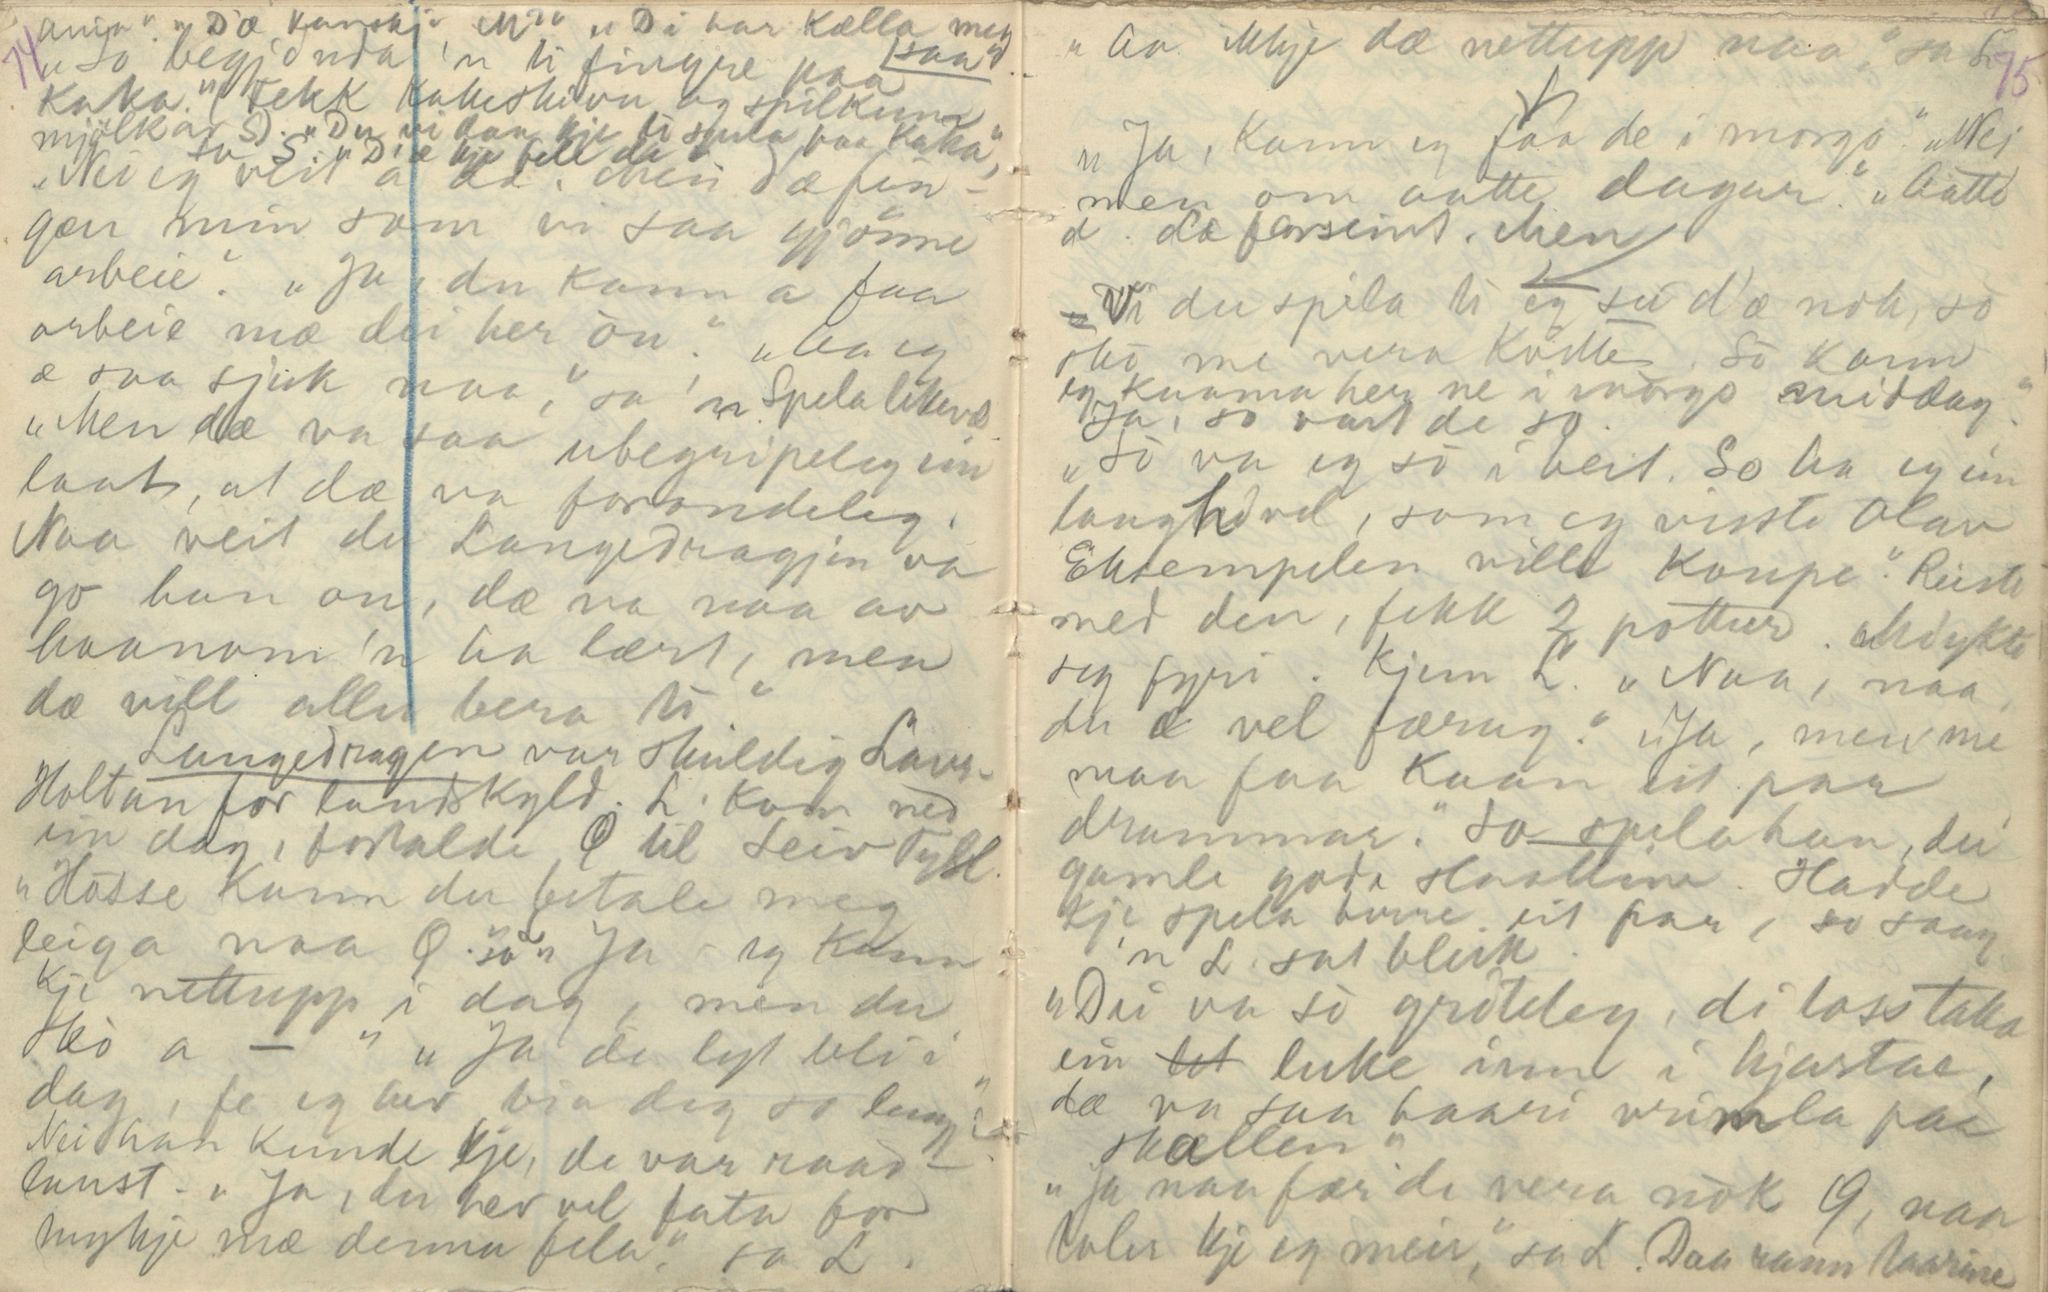 74
anin". "Dæ kanskje M" "Di har kælla meg
saa".
"So begjonda 'n ti fingre paa
kaka." (Fekk kakeskiva og spilkum
mjölk av S). "Du vi kan kje ti spila paa kaka",
sa S. "D'æ kje fele da"
"Nei eg veit a da. Men dæ fin-
gan min som vi saa gjönne
arbeie". "Ja, du kann a faa
arbeie mæ dei her òn". "Aa eg
æ saa sjuk naa," sa 'n. Spela likevæl
"Men dæ va saa ubegripeleg ein
laat, at dæ va forandeleg.
Naa veit du Langedragjen va
go han òn, dæ va naa av
haanom 'n ha lært, men
dæ vill aller bera ti".
Langedragen var skuldig Lavr-
Holtan for landskyld. L. kom ned
ein dag, fortalde O til Seiv Tykl.
"Hòsse kann du betale meg
leiga naa O." so "Ja - eg kann
kje nettupp i dag, men du
skò a — " "Ja de lyt bli i
dag, fe eg her bia deg so leng".
Nei han kunde kje, de var raad-
laust - "Ja, du her vel fata for
mykje mæ denna fela," sa L.
75
"Aa ikkje dæ nettupp naa," sa
"Ja, kann eg faa de i morgo". "Nei
men om aatte dagar." "Aatte
d. dæ forseint. Men
- Vi du spila ti eg sei d'æ nok, sò
skò me vera kvitte. So kann
eg kaama her ne i mòrgo middag".
Ja, so vart de so.
"Sò va eg sò i beit. So ha eg ein
langhövel, som eg visste Olav
Eksempelen ville kaupe". Reiste
med den, fekk 2 pottur. Mòykte
seg fyri. Kjem L. "Naa, naa
du æ vel færug". "Ja, men me
maa faa kaan eit par
drammar." So spela han, dei
gamle gode slaattine. Hadde
kje spela burre eit par, so saag
'n L. sat bleik.
"Dei va sò gròteleg, di loss taka
ein luke inn i hjartae,
dæ va saa haari vrimla paa
skallen"
"Ja naa fær de vera nòk O, naa
toler kje eg meir," sa L. Daa rann taarine